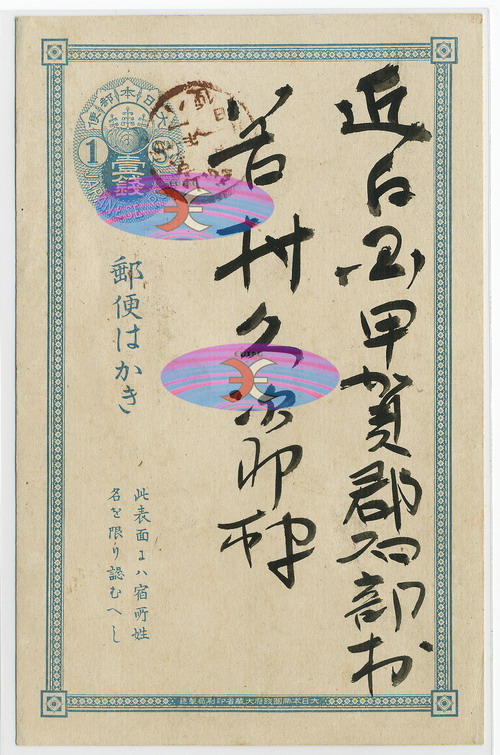 近江国甲賀郡石部村
村久次郎様
大日本郵便
1
壹錢
S
郵便はかき
此表面ニハ宿所姓
名を限り認むへし
大日本帝國政府大藏省印刷局製造